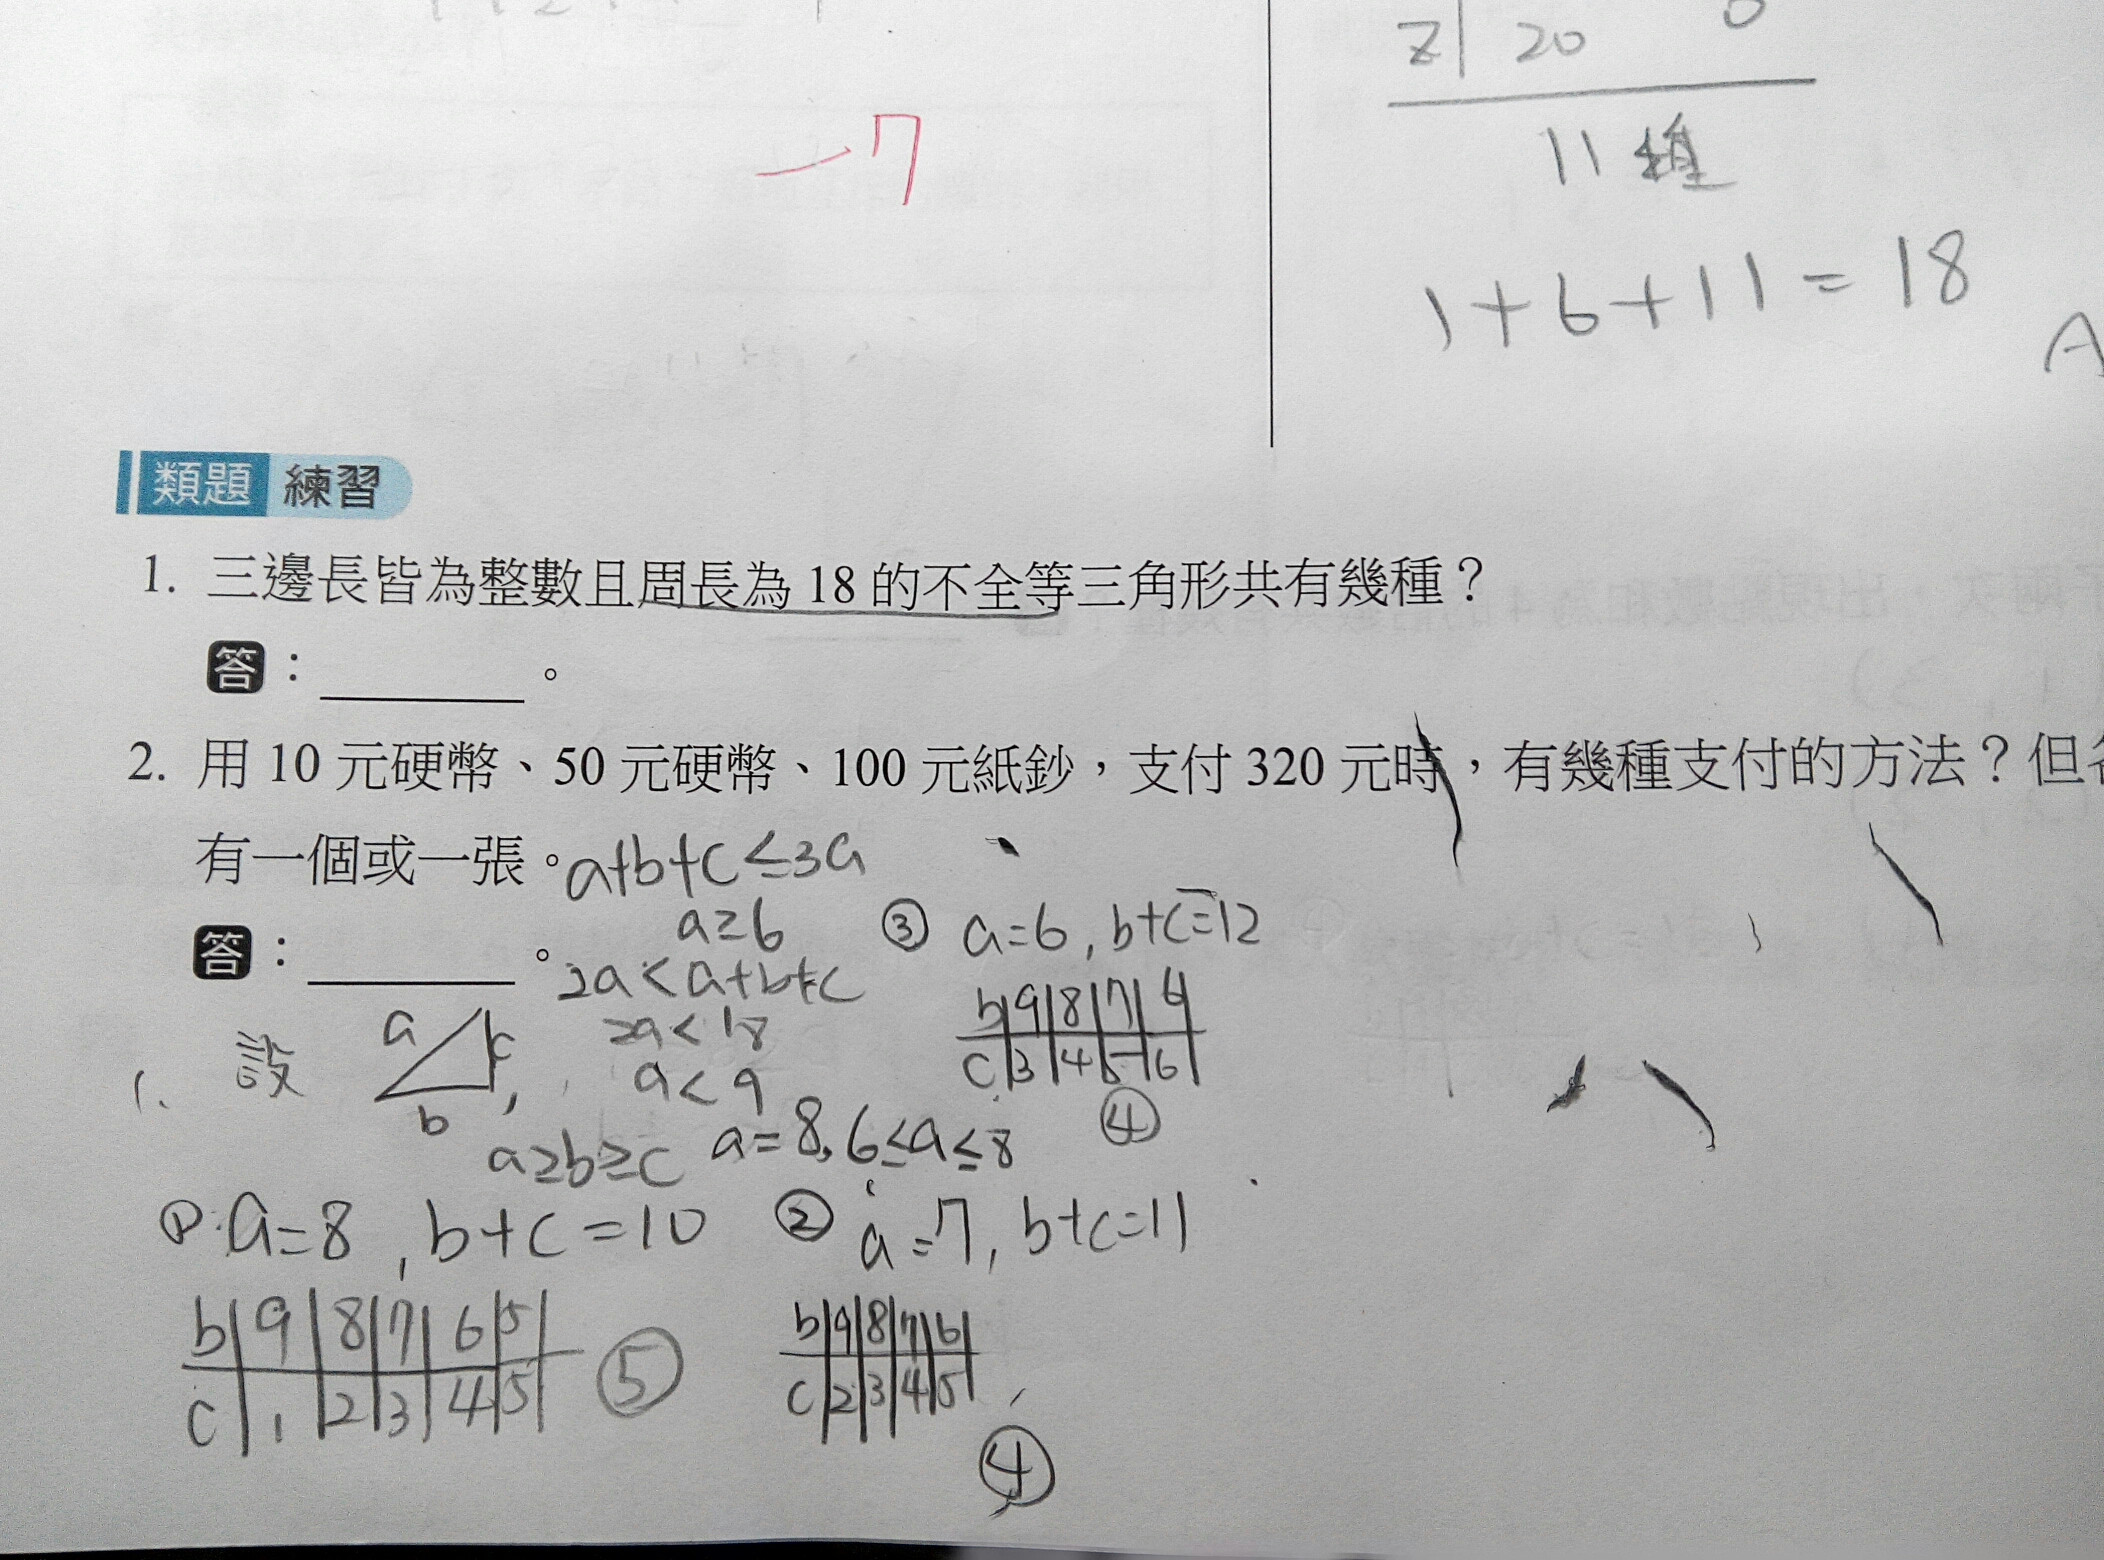 z 20
11種
1+6+11=18
A
7
類題 練習
1. 三邊長皆為整數且周長為 18 的不全等三角形共有幾種？
答：。
2. 用 10 元硬幣、50 元硬幣、100 元紙鈔，支付 320 元時，有幾種支付的方法？但
有一個或一張。
答：。
a+b+c≤3a
a≥6
2a<a+b+c
2a<18
a<9
a=8, 6≤a≤8
1. 設 a b c ,
a≥b≥c
① a=8, b+c=10
b 9 8 7 6 5
c 1 2 3 4 5
⑤
② a=7, b+c=11
b 9 8 7 6
c 2 3 4 5
④
③ a=6, b+c=12
b 9 8 7 6
c 3 4 5 6
④